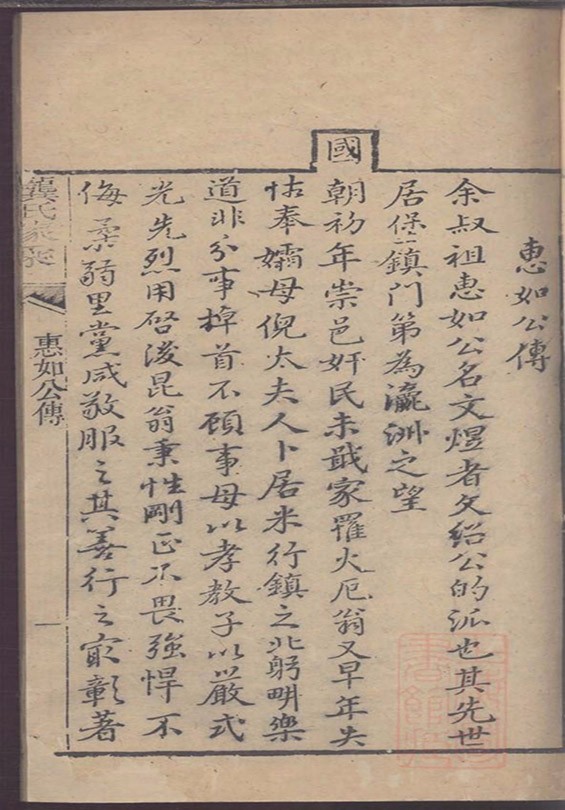 惠如公傳
余叔祖惠如公名文煜者文紹公的派也其先世
居堡鎮門第為瀛洲之望
國
朝初年崇邑奸民未戢家罹火厄翁又早年失
怙奉孀母倪太夫人卜居米行鎮之北躬畊樂
道非分事掉首不顧事母以孝教子以嚴式
光先烈用啓後昆翁秉性剛正不畏強悍不
侮柔弱里黨咸敬服之其善行之最彰著
龔氏家乘
惠如公傳
一